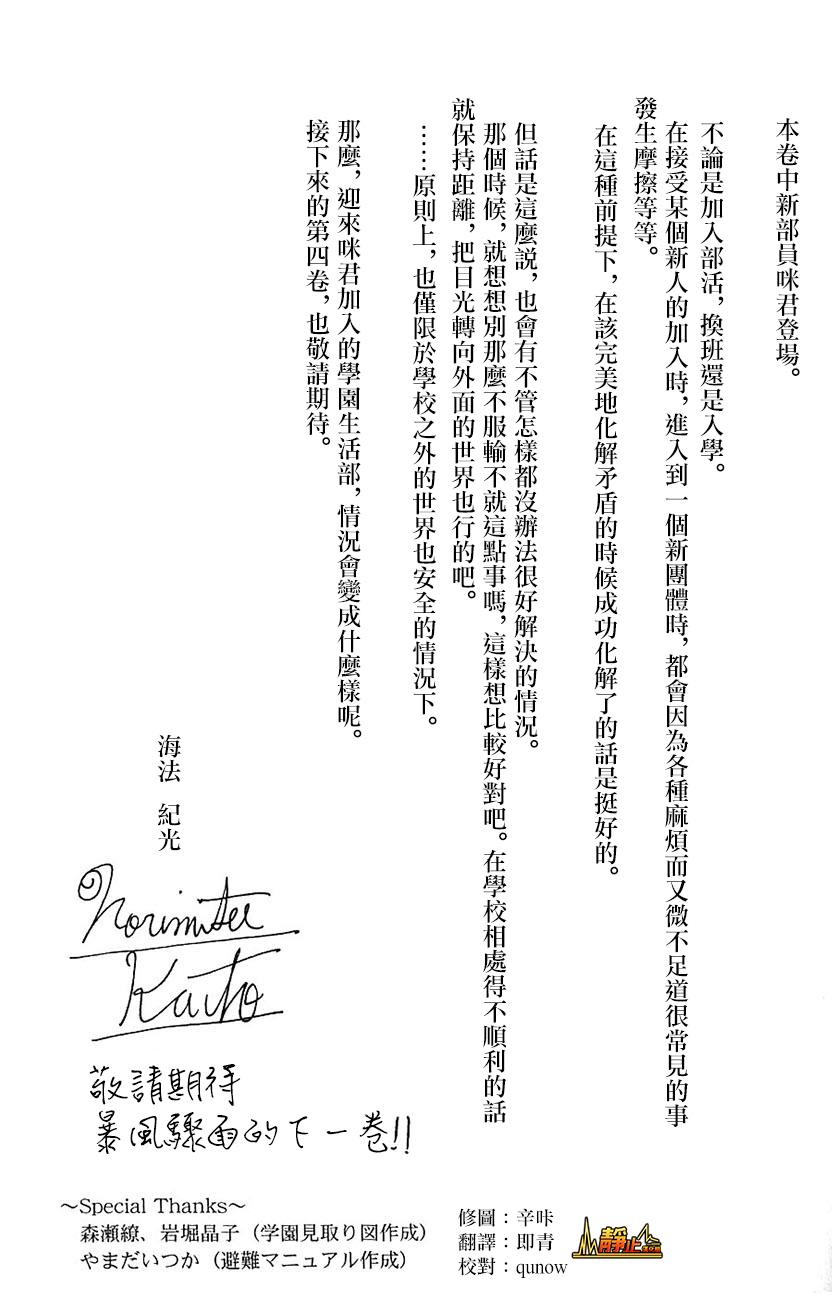 本卷中新部員咪君登場。
不論是加入部活，換班還是入學。
在接受某個新人的加入時，進入到一個新團體時，都會因為各種麻煩而又微不足道很常見的事
發生摩擦等等。
在這種前提下，在該完美地化解矛盾的時候成功化解了的話是挺好的。
但話是這麼説，也會有不管怎樣都沒辦法很好解決的情況。
那個時候，就想想別那麼不服輸不就這點事嗎，這樣想比較好對吧。在學校相處得不順利的話
就保持距離，把目光轉向外面的世界也行的吧。
……原則上，也僅限於學校之外的世界也安全的情況下。
那麼，迎來咪君加入的學園生活部，情況會變成什麼樣呢。
接下來的第四卷，也敬請期待。
海法　紀光
Norimitsu
Kaiho
敬請期待
暴風驟雨的下一卷!!
～Special Thanks～
森瀬繚、岩堀晶子（学園見取り図作成）
やまだいつか（避難マニュアル作成）
修圖：辛咔
翻譯：即青
校對：qunow
靜止